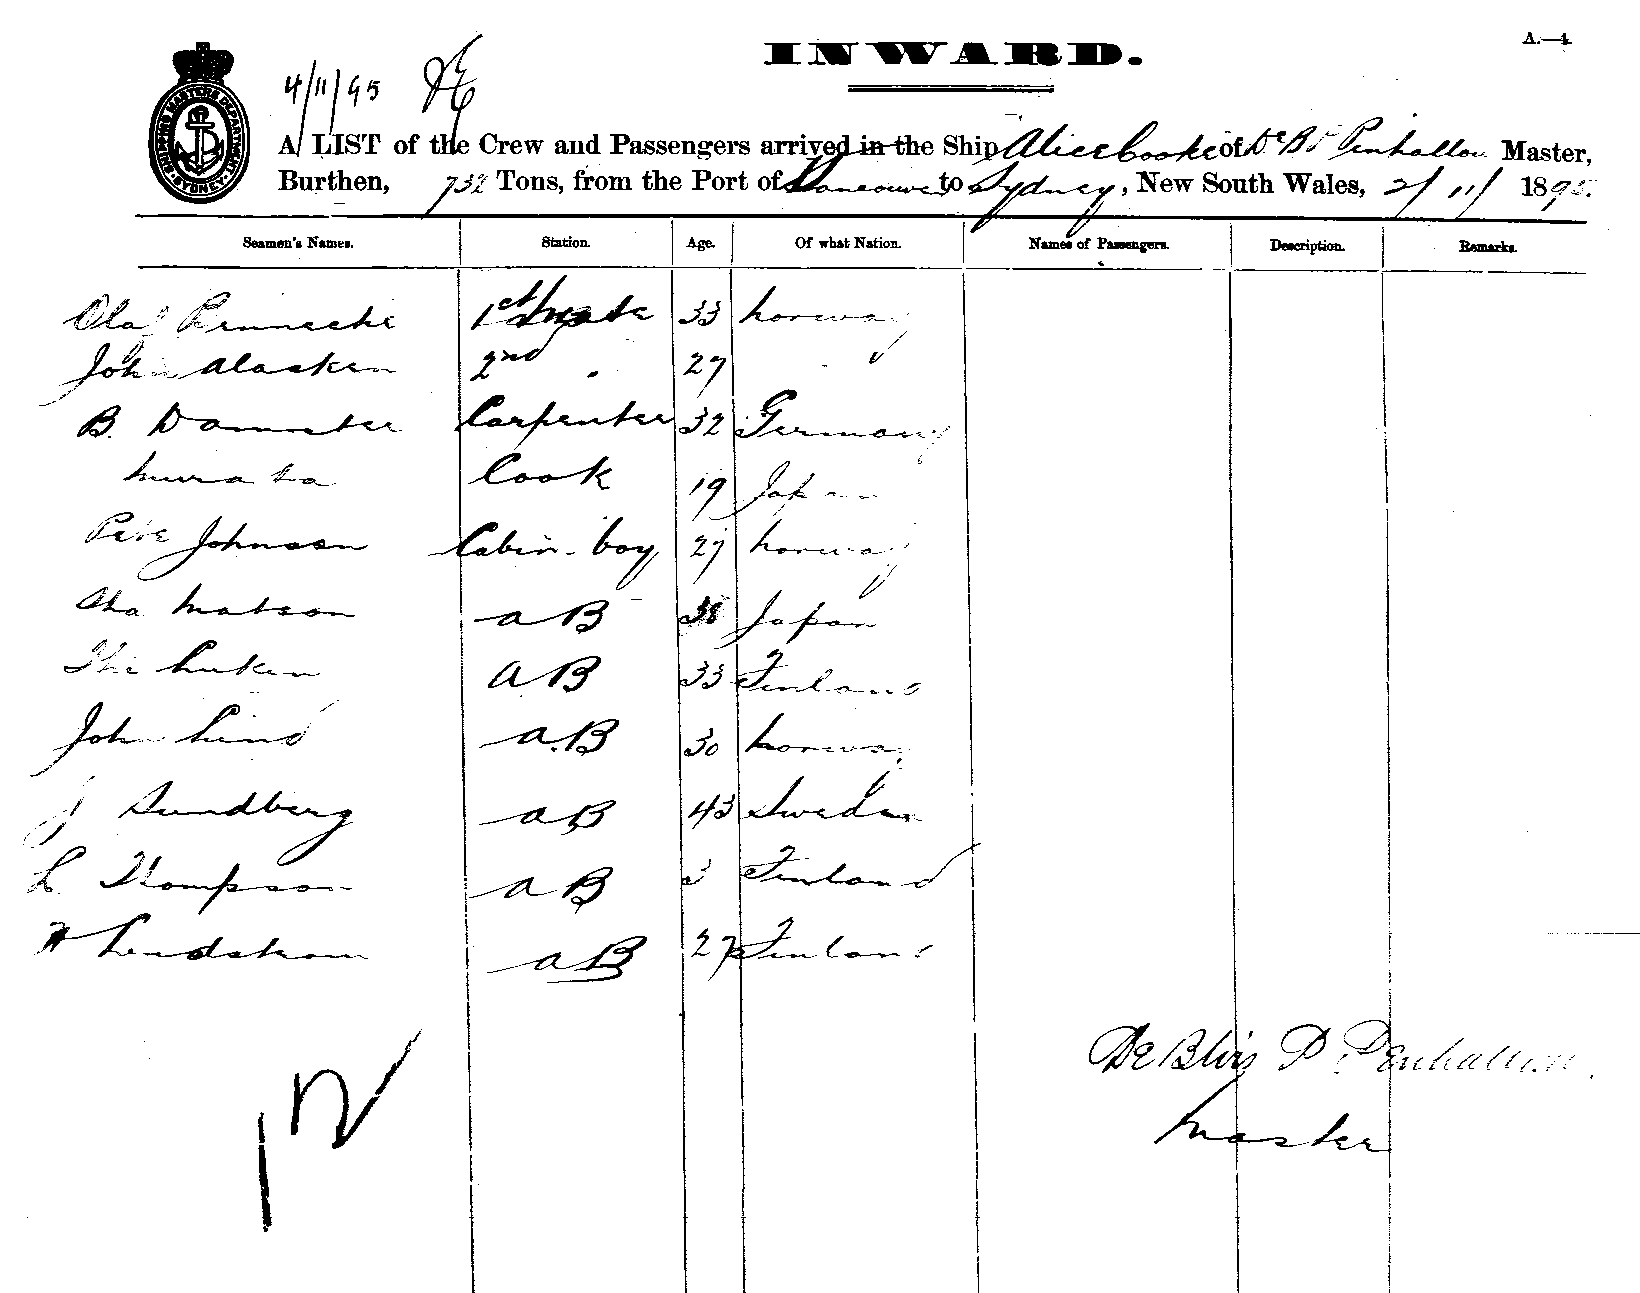 INWARD.
A.—4
4/11/95
SHIPPING MASTERS DEPARTMENT SYDNEY
A LIST of the Crew and Passengers arrived in the Ship Alice Cooke of De B P Penhallow Master,
Burthen, 732 Tons, from the Port of Vancouver to Sydney, New South Wales, 2/11/1895.
Seamen's Names. Station. Age. Of what Nation. Names of Passengers. Description. Remarks.
Olaf 1st mate 33 Norway
John Alasken 2nd " 27 "
B. Carpenter 32 Germany
Murata Cook 19 Japan
Pete Johnson Cabin-boy 27 Norway
Matson AB 38 Japan
AB 33 Finland
John Lind A.B 30 Norway
J Sundberg AB 43 Sweden
L Thompson AB 3 Finland
Lindstrom AB 27 Finland
12
De Blois P Penhallow
Master